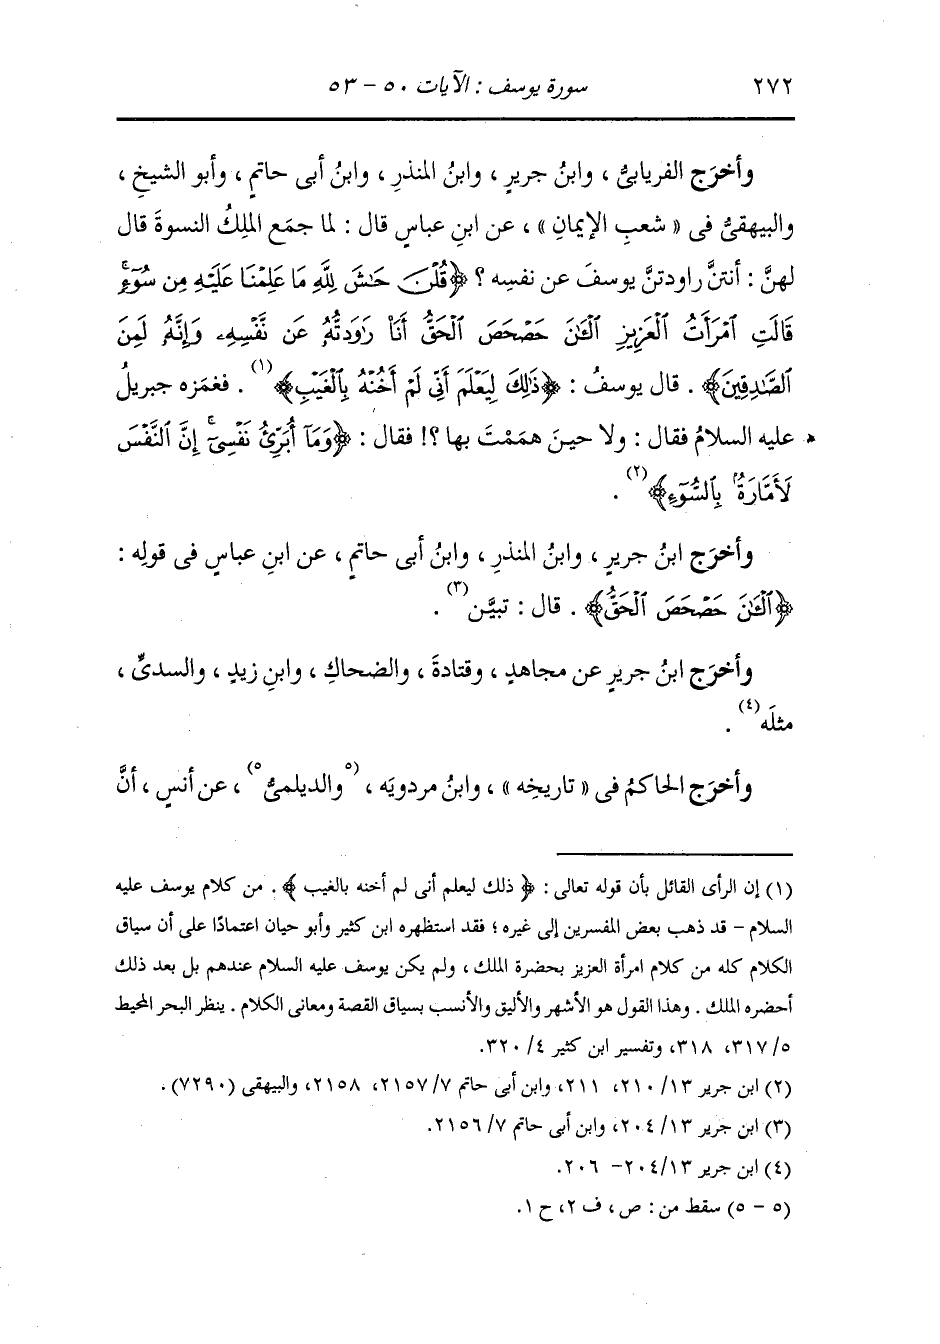 ٢٧٢ سورة يوسف : الآيات ٥٠ - ٥٣
وأخرَج الفريابيُّ ، وابنُ جريرٍ ، وابنُ المنذرِ ، وابنُ أبى حاتمٍ ، وأبو الشيخِ ،
والبيهقىُّ فى « شعبِ الإيمانِ » ، عن ابنِ عباسٍ قال : لما جمَع الملِكُ النسوةَ قال
لهنَّ : أنتنَّ راودتنَّ يوسفَ عن نفسِه ؟ ﴿قُلْنَ حَٰشَ لِلَّهِ مَا عَلِمْنَا عَلَيْهِ مِن سُوٓءٍۚ
قَالَتِ ٱمْرَأَتُ ٱلْعَزِيزِ ٱلْـَٰٔنَ حَصْحَصَ ٱلْحَقُّ أَنَا۠ رَٰوَدتُّهُۥ عَن نَّفْسِهِۦ وَإِنَّهُۥ لَمِنَ
ٱلصَّٰدِقِينَ﴾ . قال يوسفُ : ﴿ذَٰلِكَ لِيَعْلَمَ أَنِّى لَمْ أَخُنْهُ بِٱلْغَيْبِ﴾(١) . فغمَزه جبريلُ
عليه السلامُ فقال : ولا حينَ همَمْتَ بها ؟! فقال : ﴿وَمَآ أُبَرِّئُ نَفْسِىٓۚ إِنَّ ٱلنَّفْسَ
لَأَمَّارَةٌۢ بِٱلسُّوٓءِ﴾(٢) .
وأخرَج ابنُ جريرٍ ، وابنُ المنذرِ ، وابنُ أبى حاتمٍ ، عن ابنِ عباسٍ فى قولِه :
﴿ٱلْـَٰٔنَ حَصْحَصَ ٱلْحَقُّ﴾ . قال : تبيَّن(٣) .
وأخرَج ابنُ جريرٍ عن مجاهدٍ ، وقتادةَ ، والضحاكِ ، وابنِ زيدٍ ، والسدىِّ ،
مثلَه(٤) .
وأخرَج الحاكمُ فى « تاريخِه » ، وابنُ مردويَه ، (٥والديلمىُّ٥) ، عن أنسٍ ، أنَّ
(١) إن الرأى القائل بأن قوله تعالى : ﴿ ذلك ليعلم أنى لم أخنه بالغيب ﴾ . من كلام يوسف عليه
السلام - قد ذهب بعض المفسرين إلى غيره ؛ فقد استظهره ابن كثير وأبو حيان اعتمادًا على أن سياق
الكلام كله من كلام امرأة العزيز بحضرة الملك ، ولم يكن يوسف عليه السلام عندهم بل بعد ذلك
أحضره الملك . وهذا القول هو الأشهر والأليق والأنسب بسياق القصة ومعانى الكلام . ينظر البحر المحيط
٥/ ٣١٧، ٣١٨، وتفسير ابن كثير ٤/ ٣٢٠.
(٢) ابن جرير ١٣/ ٢١٠، ٢١١، وابن أبى حاتم ٧/ ٢١٥٧، ٢١٥٨، والبيهقى (٧٢٩٠) .
(٣) ابن جرير ١٣/ ٢٠٤، وابن أبى حاتم ٧/ ٢١٥٦.
(٤) ابن جرير ١٣/ ٢٠٤- ٢٠٦.
(٥ - ٥) سقط من : ص ، ف ٢، ح ١.